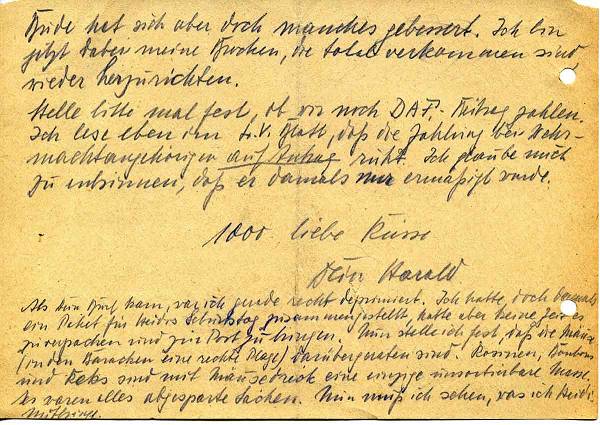 Bude hat sich aber doch manches gebessert. Ich bin
jetzt dabei meine Brocken, die total verkommen sind
wieder herzurichten.
Stelle bitte mal fest, ob wir noch DAF.-Beitrag zahlen.
Ich lese eben im Blatt, daß die Zahlung bei Wehr-
machtangehörigen auf Antrag ruht. Ich glaube mich
zu entsinnen, daß er damals nur ermäßigt wurde.
1000 liebe Küsse
Dein Harald
Als Dein Brief kam, war ich gerade recht deprimiert. Ich hatte doch damals
ein Paket für Heidis Geburtstag zusammengestellt, hatte aber keine Zeit es
zu verpacken und zur Post zu bringen. Nun stelle ich fest, daß die Mäuse
(in den Baracken eine rechte Plage) darübergeraten sind. Rosinen, Bonbons
und Keks sind mit Mäusedreck eine einzige unsortierbare Masse.
Es waren alles abgesparte Sachen. Nun muß ich sehen, was ich Heidi
mitbringe.